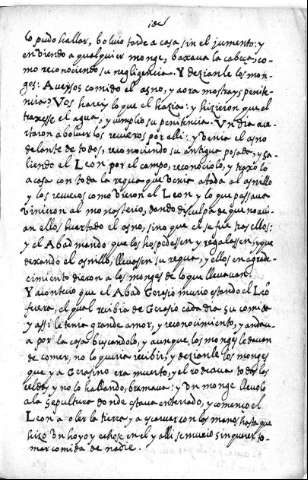 lo pudo hallar, bolvio tarde a casa sin el jumento: y
en viendo a qualquier monge, baxava la cabeza co-
mo reconociendo su negligencia. Y dezianle los mon-
ges: Aveysos comido el asno, y aora mostrays peniten-
cia? Vos hareys lo que el hazia: y hizieron que el
traxesse el agua, y cumplio su penitencia. Un dia a-
certaron a bolver los recueros por alli: y venia el asno
delante de todos, reconociendo su antigua posada, y sa-
liendo el Leon por el campo, reconociolo, y traxo lo
a casa con toda la requa que venia atada al asnillo
y los recueros como vieron el Leon y lo que passava
vinieron al monasterio, dando disculpa de que no avi-
an ellos hurtado el asno, sino que el se fue tras ellos:
y el Abad mando que los hospedassen y regalassen, y que
dexando el asnillo, llevassen su requa, y ellos en agrade-
cimiento dieron a los monges de lo que llevavan.
Y acontecio que el Abad Gerasio murio estando el Leon
fuera, el qual recibio de Gerasio cada dia su comida
y assi le tenia grande amor, y reconocimiento, y andav-
a por la casa buscandolo, y aunque los monges le davan
de comer, no lo queria recibir, y dezianle los monges
que ya Gerasino era muerto, y el rodeava todas las
celdas, y no lo hallando, bramava: y un monge llevolo
a la sepultura donde estava enterrado, y començo el
Leon a oler la tierra, y a escarvar con las manos hasta que
hizo un hoyo y echose en el y alli se murio sin querer to-
mar comida de nadie.